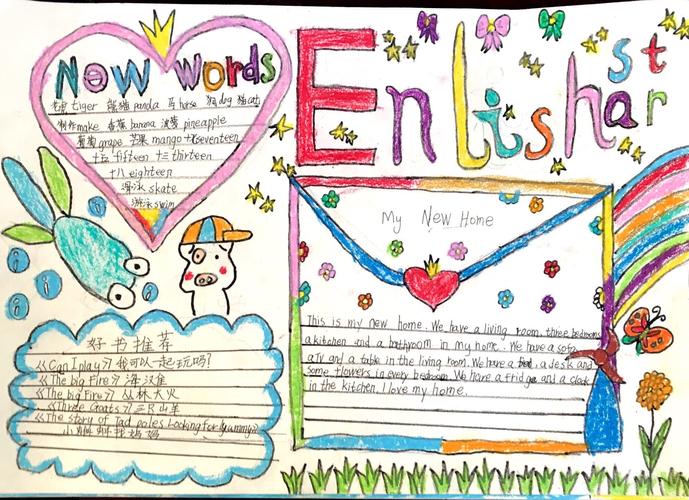 New words
老虎 tiger 熊猫 panda 马 horse 狗 dog 猫 cat
制作 make 香蕉 banana 菠萝 pineapple
葡萄 grape 芒果 mango 十七 seventeen
十五 fifteen 十三 thirteen
十八 eighteen
滑冰 skate
游泳 swim
Enlish star
My New Home
This is my new home. We have a living room, three bedrooms
a kitchen and a bathroom in my home. We have a sofa
a TV and a table in the living room. We have a bed, a desk and
some flowers in every bedroom. We have a fridge and a clock
in the kitchen. I love my home.
好书推荐
《Can I play》我可以一起玩吗?
《The big Fire》
《The big Fire》丛林大火
《Three Goats》三只山羊
《The story of Tad poles Looking for
小蝌蚪找妈妈